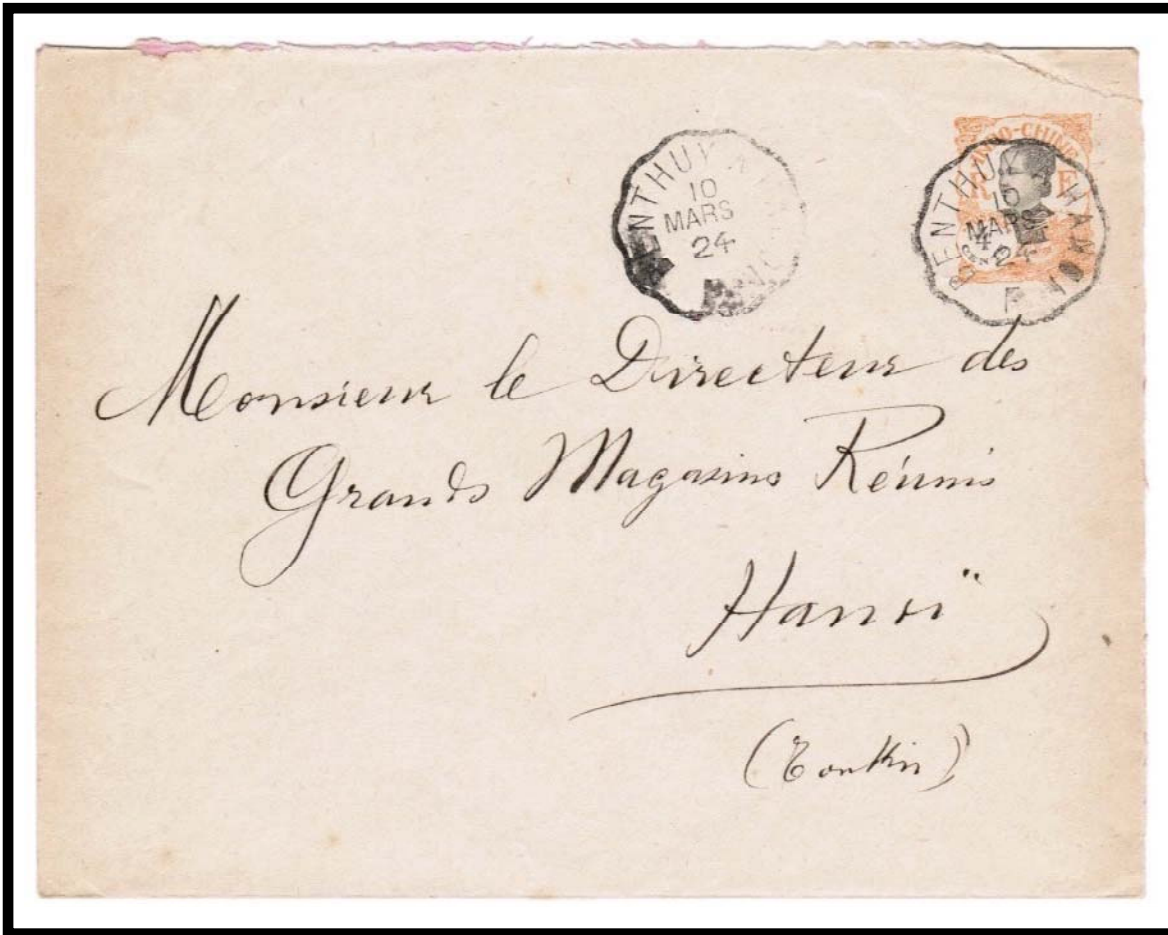 BENTHUY A HANOI
10
MARS
24
INDO-CHINE
R F
BENTHUY A HANOI
10
MARS
24
4
CENTS
Monsieur le Directeur des
Grands Magasins Réunis
Hanoï
(Tonkin)